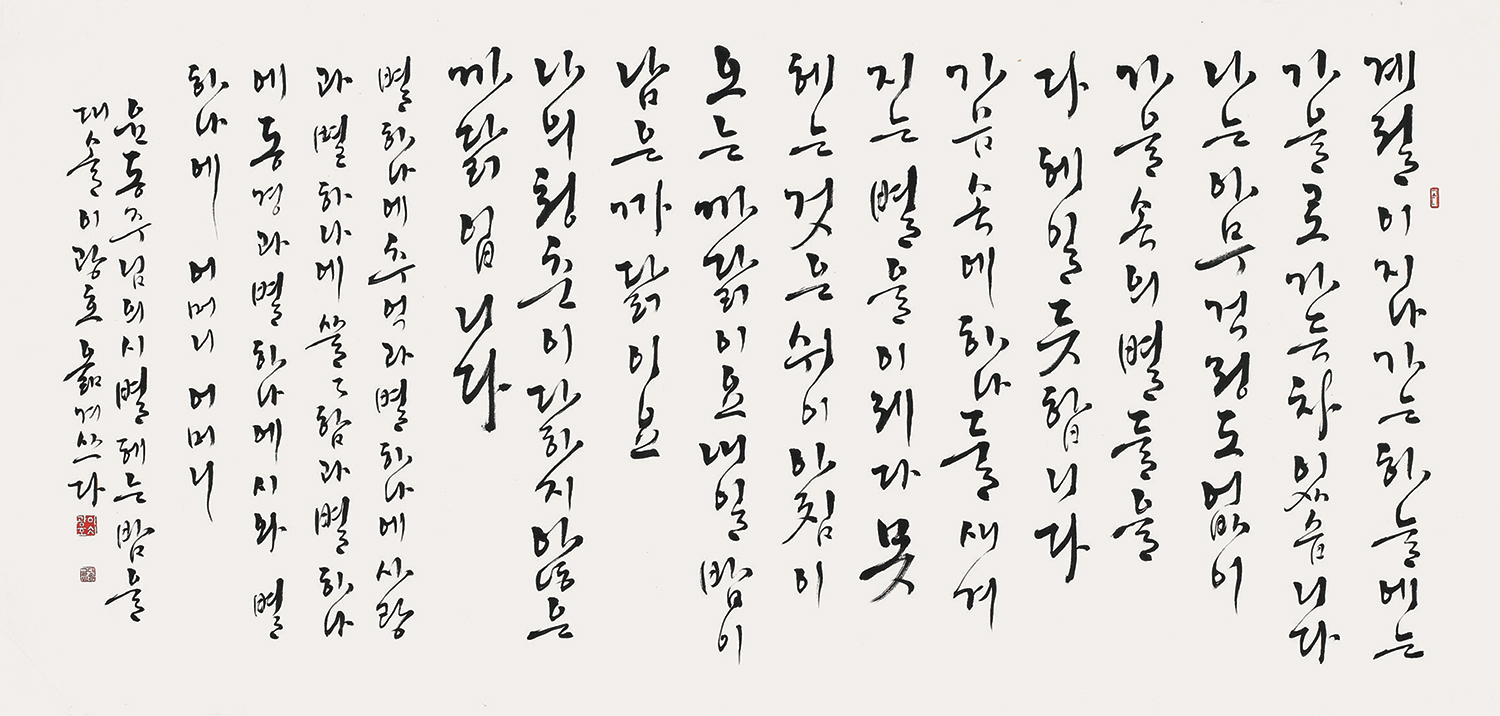 계절이지나가는하늘에는
가을로가득차있습니다
나는아무걱정도없이
가을속의별들을
다 헤일듯합니다
가슴속에하나둘새겨
지는별을이제다못
헤는것은쉬이아침이
오는까닭이요내일밤이
남은까닭이요
나의청춘이다하지않은
까닭입니다
별하나에추억과별하나에사랑
과별하나에쓸〻함과별하나
에동경과별하나에시와 별
하나에 어머니 어머니
윤동주님의시별헤는밤을
대솔이광호옮겨쓰다